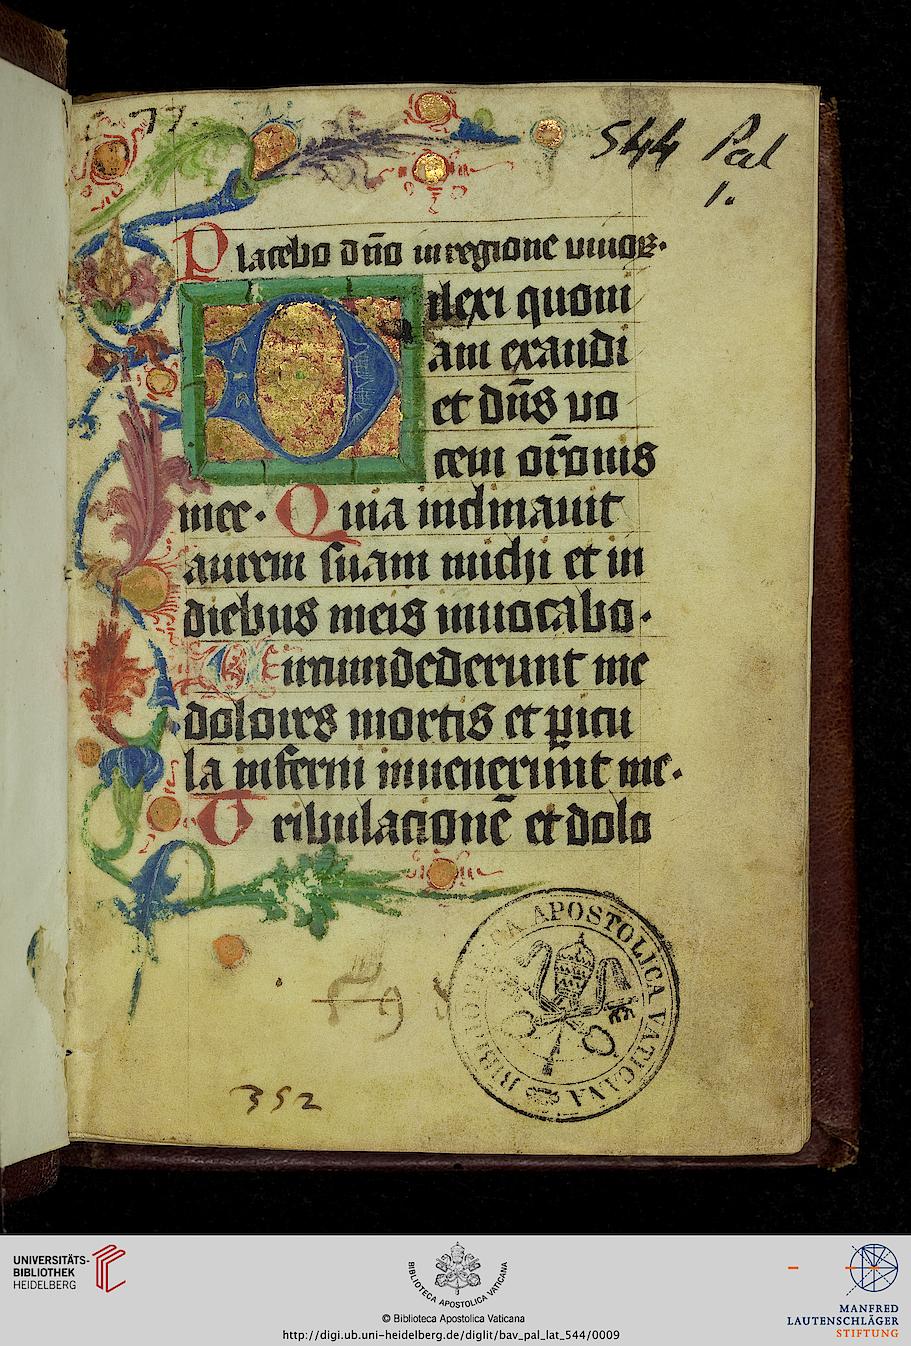 77.
544 Pal
1.
Placebo dño in regione uiuoꝝ.
Dilexi quoni
am exaudi
et dñs uo
cem oro̅nis
mee. Quia inclinauit
aurem suam michi et in
diebus meis inuocabo.
Circumdederunt me
dolores mortis et picu
la inferni inuenerūnt me.
Tribulacione̅ et dolo
BIBLIOTECA APOSTOLICA VATICANA
352
UNIVERSITÄTS-
BIBLIOTHEK
HEIDELBERG
BIBLIOTECA APOSTOLICA VATICANA
© Biblioteca Apostolica Vaticana
http://digi.ub.uni-heidelberg.de/diglit/bav_pal_lat_544/0009
MANFRED
LAUTENSCHLÄGER
STIFTUNG